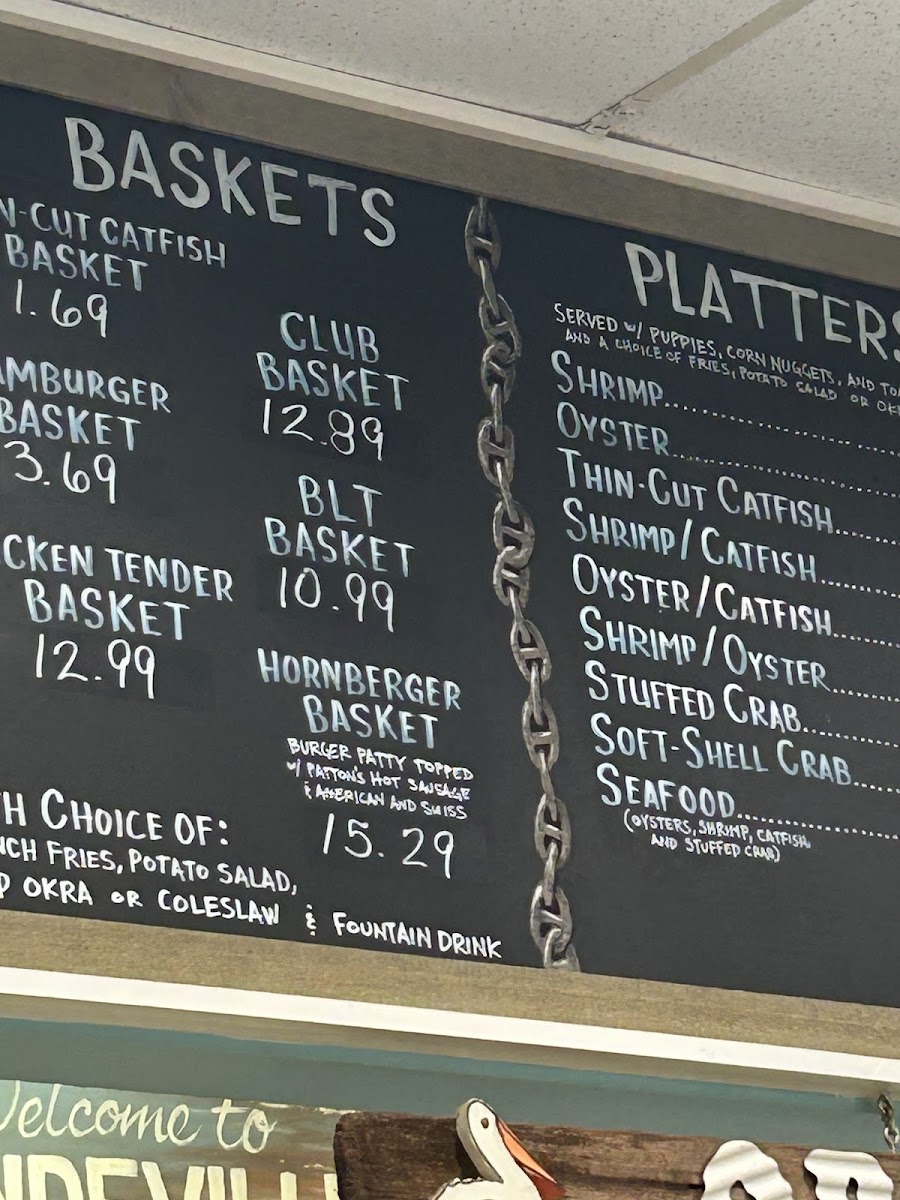 BASKETS
N-CUT CATFISH
BASKET
1.69
AMBURGER
BASKET
3.69
CKEN TENDER
BASKET
12.99
CLUB
BASKET
12.89
BLT
BASKET
10.99
HORNBERGER
BASKET
BURGER PATTY TOPPED
w/ PATTON'S HOT SAUSAGE
& AMERICAN AND SWISS
15.29
H CHOICE OF:
NCH FRIES, POTATO SALAD,
D OKRA OR COLESLAW & FOUNTAIN DRINK
PLATTERS
SERVED w/ PUPPIES, CORN NUGGETS, AND TOA
AND A CHOICE OF FRIES, POTATO SALAD OR OKR
SHRIMP
OYSTER
THIN-CUT CATFISH
SHRIMP/CATFISH
OYSTER/CATFISH
SHRIMP/OYSTER
STUFFED CRAB
SOFT-SHELL CRAB
SEAFOOD
(OYSTERS, SHRIMP, CATFISH
AND STUFFED CRAB)
Welcome to
NDEVILL